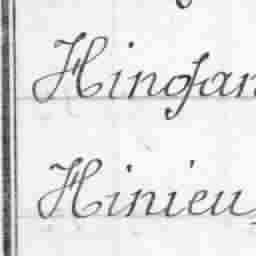 Hingan
Hinieu,